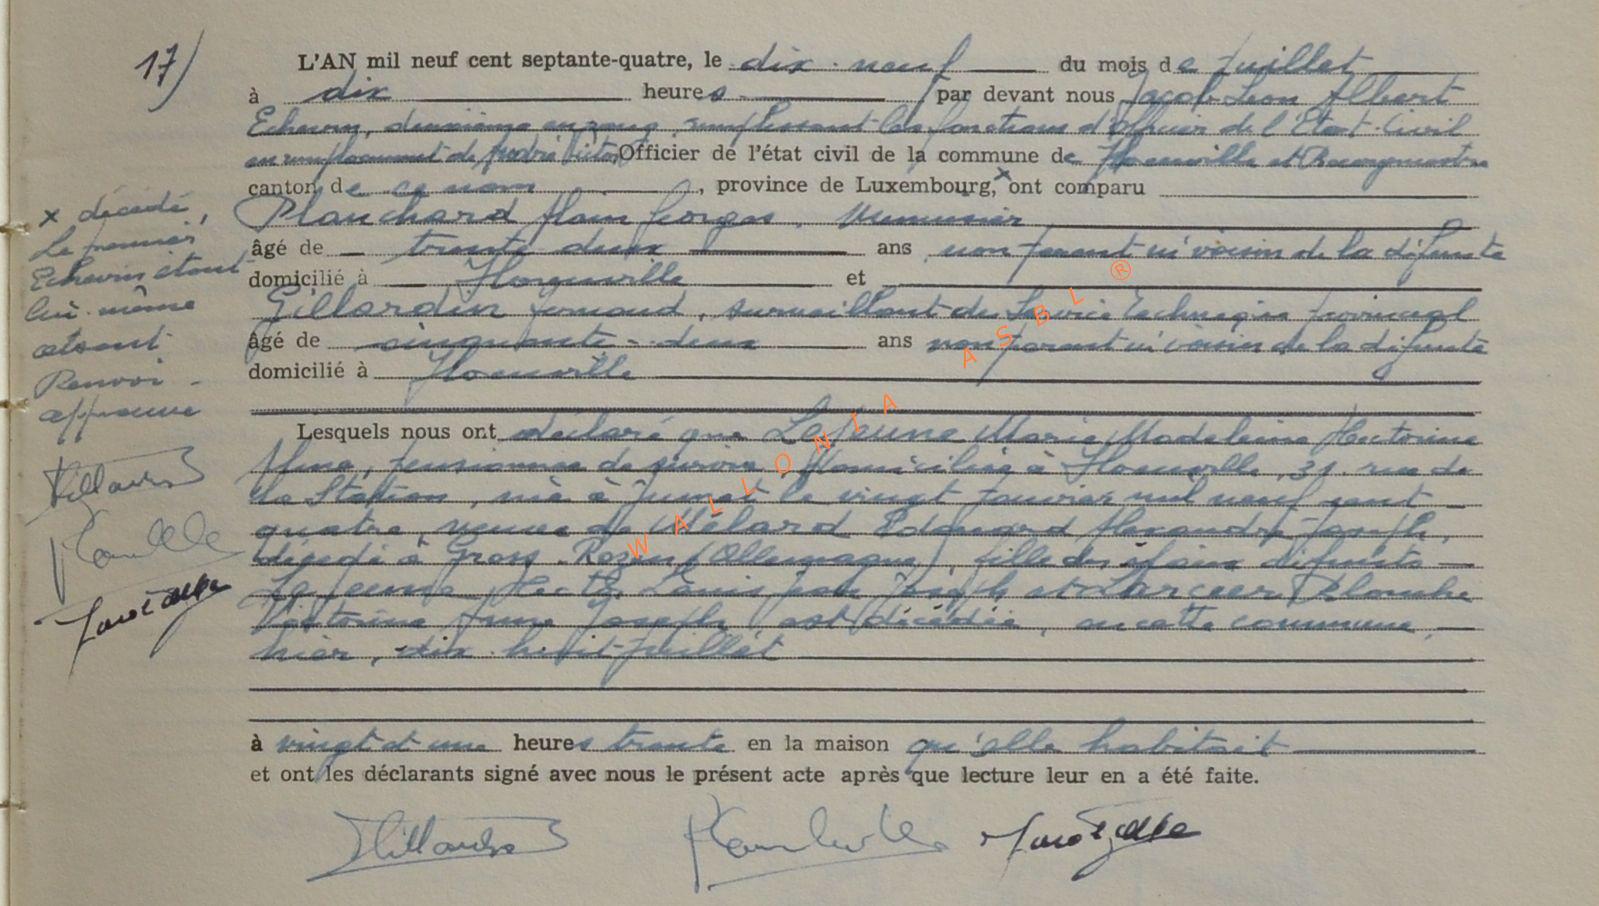 17)
L'AN mil neuf cent septante-quatre, le dix-neuf du mois de juillet
à dix heures par devant nous Jacob Léon Albert
Echevin, deuxième en rang, remplissant les fonctions d'officier de l'Etat-Civil
en remplacement de Officier de l'état civil de la commune de
canton de ce nom, province de Luxembourg,x ont comparu
Planchard Alain Georges, Menuisier
âgé de trente deux ans non parent ni voisin de la défunte
domicilié à et
Gillardin Fernand, surveillant du Service technique provincial
âgé de cinquante-deux ans non parent ni voisin de la défunte
domicilié à
Lesquels nous ont déclaré que Lajeune Marie Madeleine
pensionnée de survie, domiciliée à 31, rue de
la Station, née à Jumet le vingt janvier mil neuf cent
quatre, veuve de Mélard Edouard Alexandre Joseph,
décédé à Gross-Rozen (Allemagne), fille des époux défunts
Lejeune Louis Joseph et Larcier Blanche
Victorine Anne Joseph est décédée, en cette commune,
hier, dix-huit juillet
à vingt et une heures trente en la maison qu'elle habitait
et ont les déclarants signé avec nous le présent acte après que lecture leur en a été faite.
x décédé,
Le premier
Echevin étant
lui-même
absent
Renvoi
approuvé
WALLONIA ASBL ®